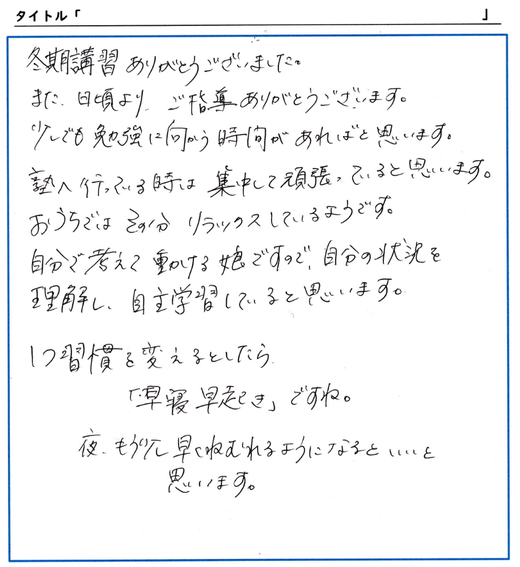 タイトル「 」
冬期講習ありがとうございました。
また、日頃より、ご指導ありがとうございます。
少しでも勉強に向かう時間があればと思います。
塾へ行っている時は集中して頑張っていると思います。
おうちではその分リラックスしているようです。
自分で考えて動ける娘ですので、自分の状況を
理解し、自主学習していると思います。
1つ習慣を変えるとしたら、
「早寝早起き」ですね。
夜、もう少し早くねむれるようになるといいと
思います。